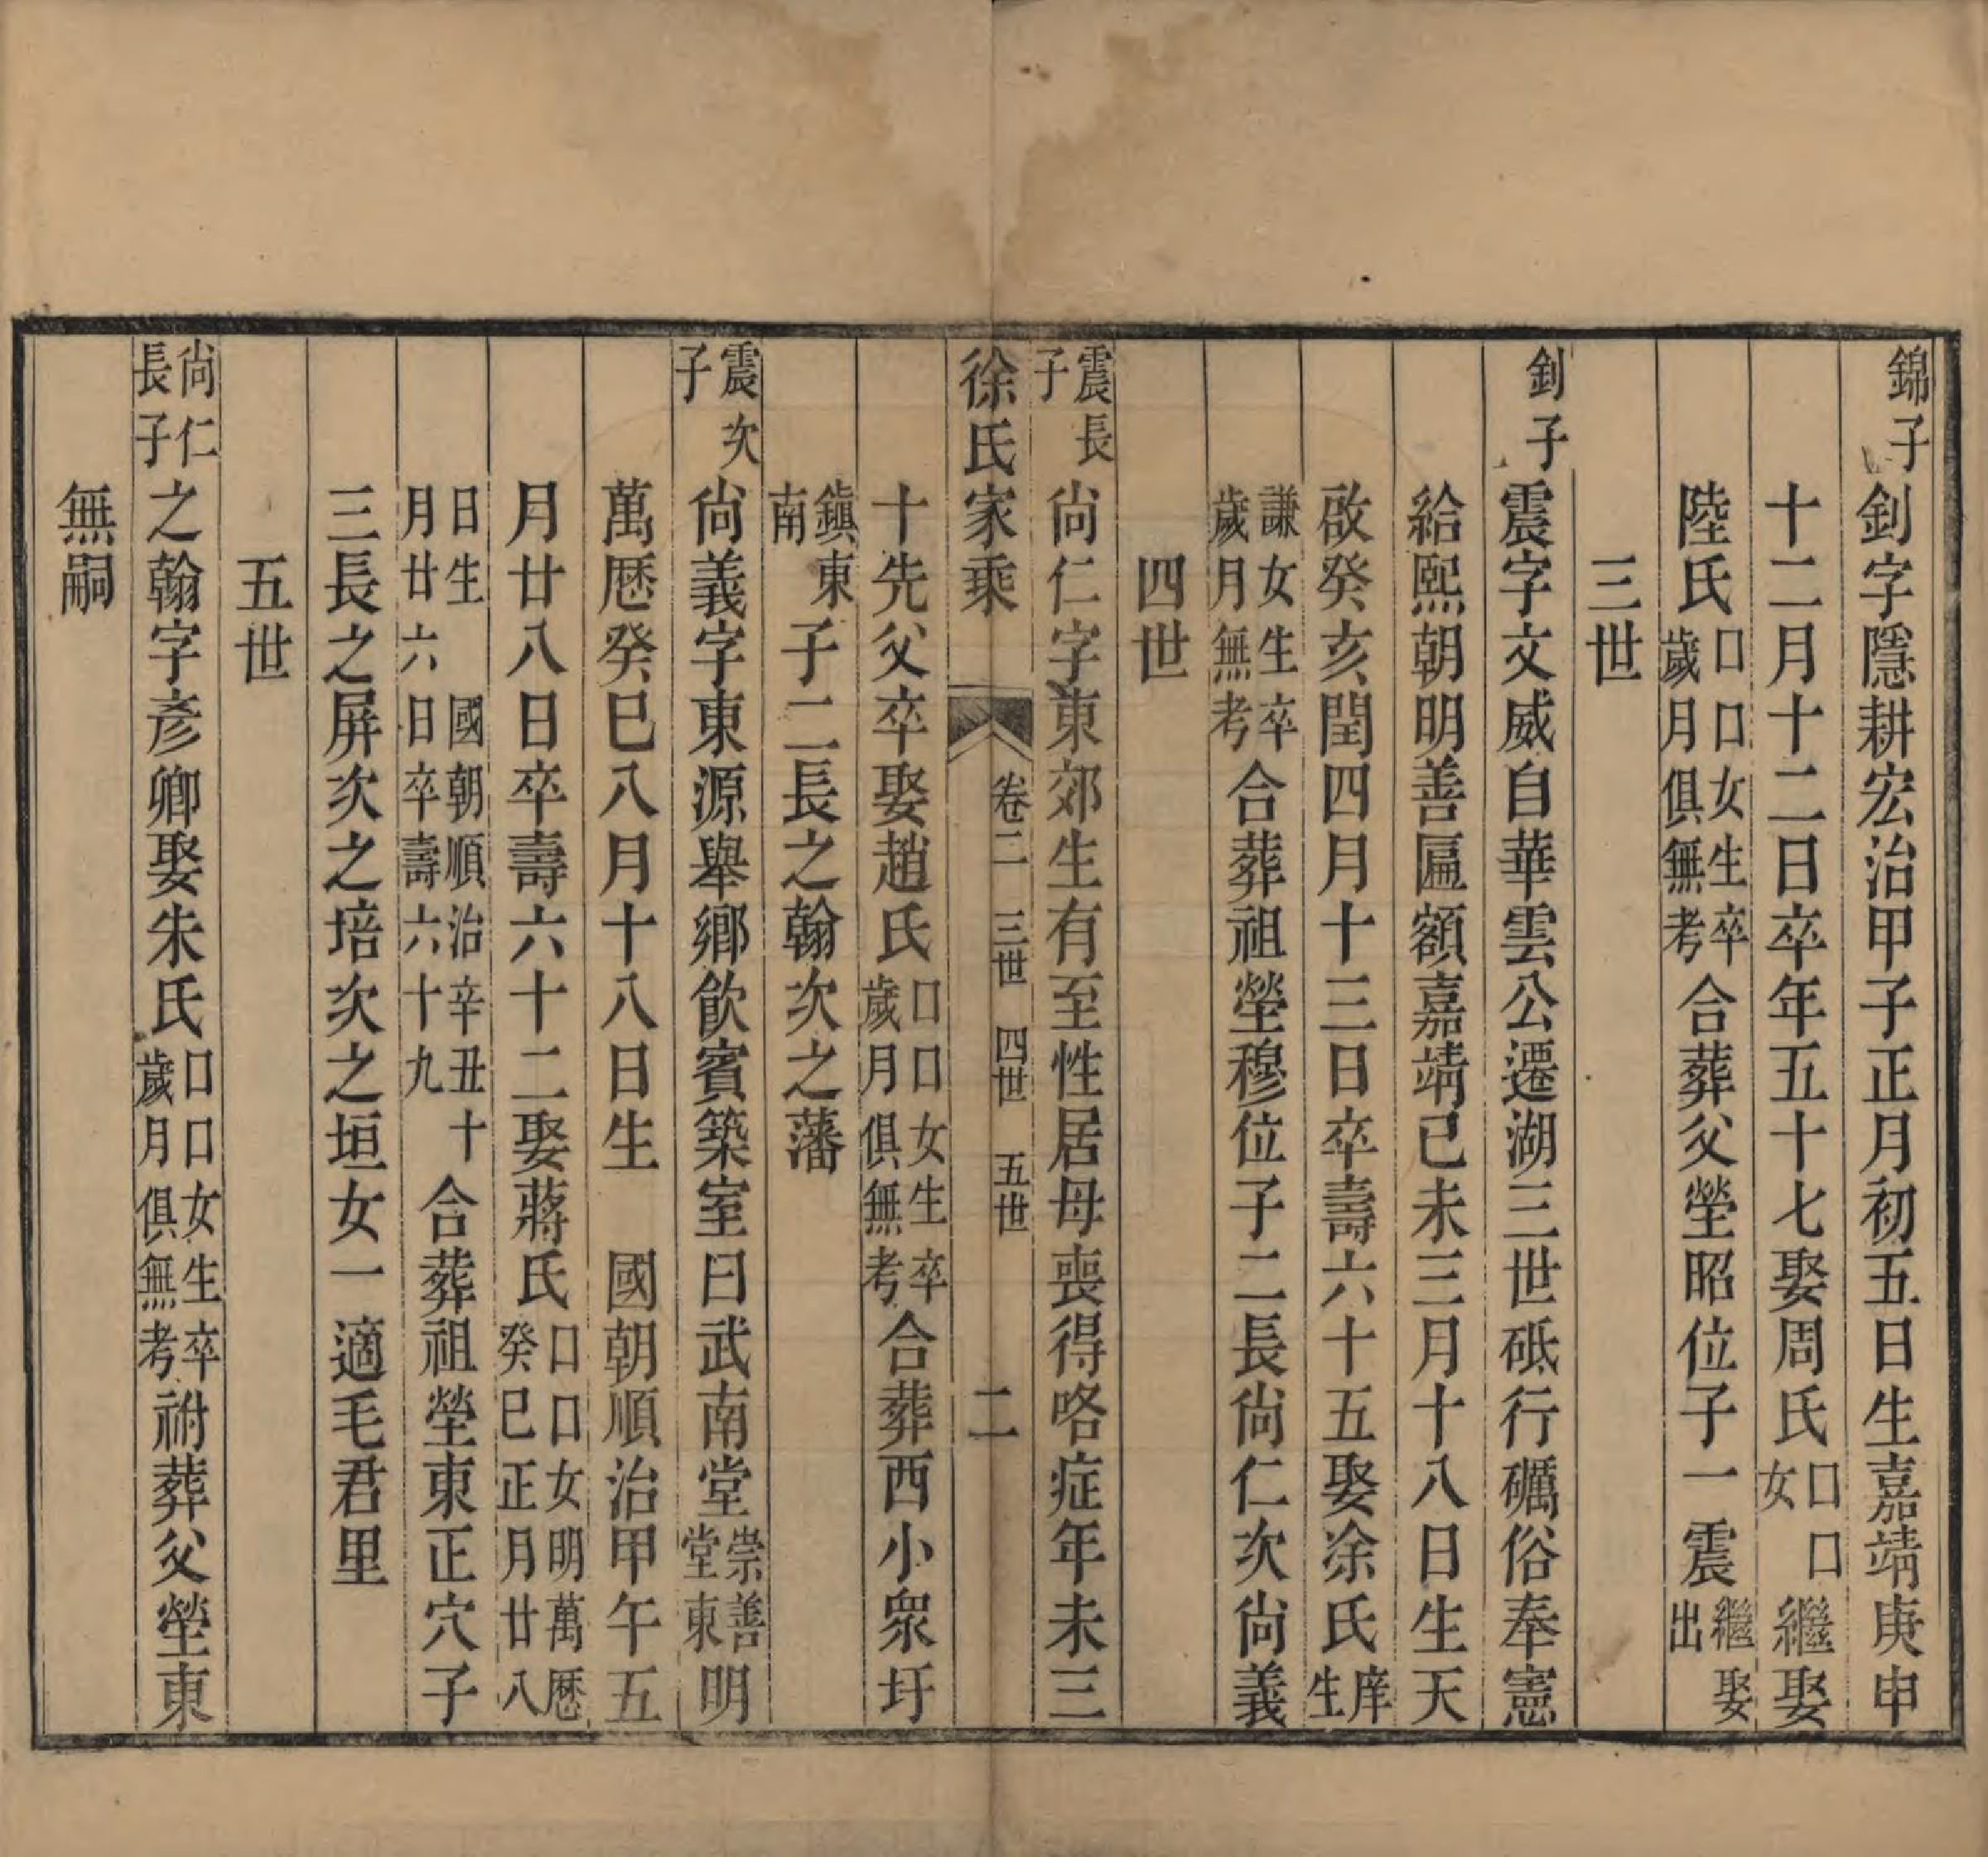 錦子釗字隱耕宏治甲子正月初五日生嘉靖庚申
十二月十二日卒年五十七娶周氏口口女繼娶
陸氏口口女生卒歲月俱無考合葬父塋昭位子一震繼娶出
三世
釗子震字文威自華雲公遷湖三世砥行礪俗奉憲
給熙朝明善匾額嘉靖己未三月十八日生天
啟癸亥閏四月十三日卒壽六十五娶涂氏庠生
謙女生卒歲月無考合葬祖塋穆位子二長尙仁次尙義
四世
震長子尙仁字東郊生有至性居母喪得咯症年未三
徐氏家乘 卷二 三世 四世 五世 二
十先父卒娶趙氏口口女生卒歲月俱無考合葬西小衆圩
鎮東南子二長之翰次之藩
震次子尙義字東源舉鄉飮賓築室曰武南堂崇善堂東明
萬厯癸巳八月十八日生 國朝順治甲午五
月廿八日卒壽六十二娶蔣氏口口女明萬厯癸巳正月廿八
日生 國朝順治辛丑十月廿六日卒壽六十九合葬祖塋東正穴子
三長之屏次之培次之垣女一適毛君里
五世
尙仁長子之翰字彥卿娶朱氏口口女生卒歲月俱無考祔葬父塋東
無嗣